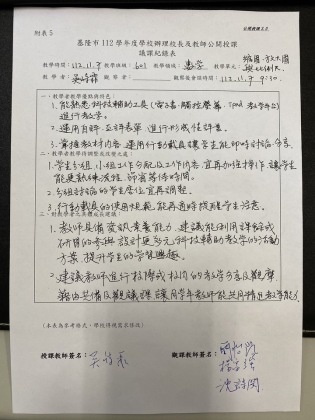 附表5
基隆市112學年度學校辦理校長及教師公開授課
議課紀錄表
教學時間：112.11.9 教學班級：601 教學領域：數學 教學單元：
教學者： 觀察者： 觀察後會談時間：112.11.9 9:30
一、教學者教學優點與特色：
1. 能熟悉科技輔助工具(電子書、觸控螢幕、ipad 教學平台)
進行教學。
2. 運用自評、互評表單進行形成性評量。
3. 掌握教材內容，運用行動載具讓學生能即時討論分享。
一、教學者教學待調整或改變之處：
1. 學生分組，小組工作分配及工作內容，宜再加強操作，讓學生
能更熟練流程，節省等待時間。
2. 分組討論的學生座位宜再調整。
3. 行動載具的使用規範，能再適時提醒學生注意。
二、對教學者之具體成長建議：
1. 教師具備資訊素養能力，建議能利用課餘或
研習的參與，設計更多元科技輔助教學的活動
方案，提升學生的學習興趣。
2. 建議教師進行校際或校內的教學分享及觀摩，
藉由共備及觀議課，讓同學年教師能共同精進教學能力。
(本表為參考格式，學校得視需求修改)
授課教師簽名： 觀課教師簽名：